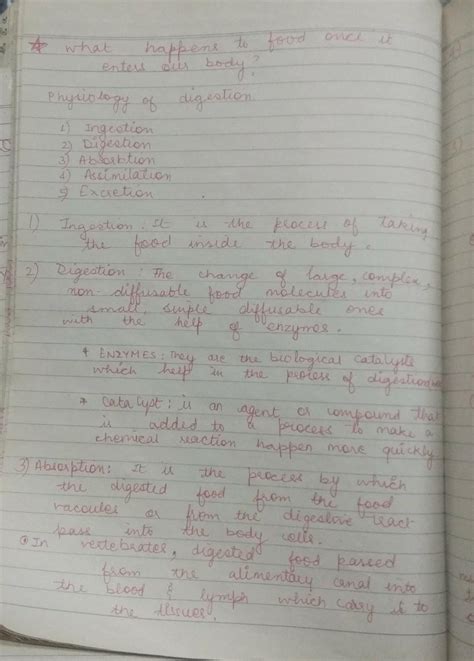 * What happens to food once it
enters our body?
Physiology of digestion
1) Ingestion
2) Digestion
3) Absorbtion
4) Assimilation
5) Excretion
1) Ingestion: It is the process of taking
the food inside the body.
2) Digestion: The change of large, complex,
non-diffusable food molecules into
small, simple diffusable ones
with the help of enzymes.
* ENZYMES: They are the biological catalysts
which help in the process of digestion
* Catalyst: is an agent or compound that
is added to a process to make a
chemical reaction happen more quickly
3) Absorption: It is the process by which
the digested food from the food
vacoules or from the digestive tract
pass into the body cells.
In vertebrates, digested food passed
from the alimentary canal into
the blood & lymph which carry it to
the tissues.